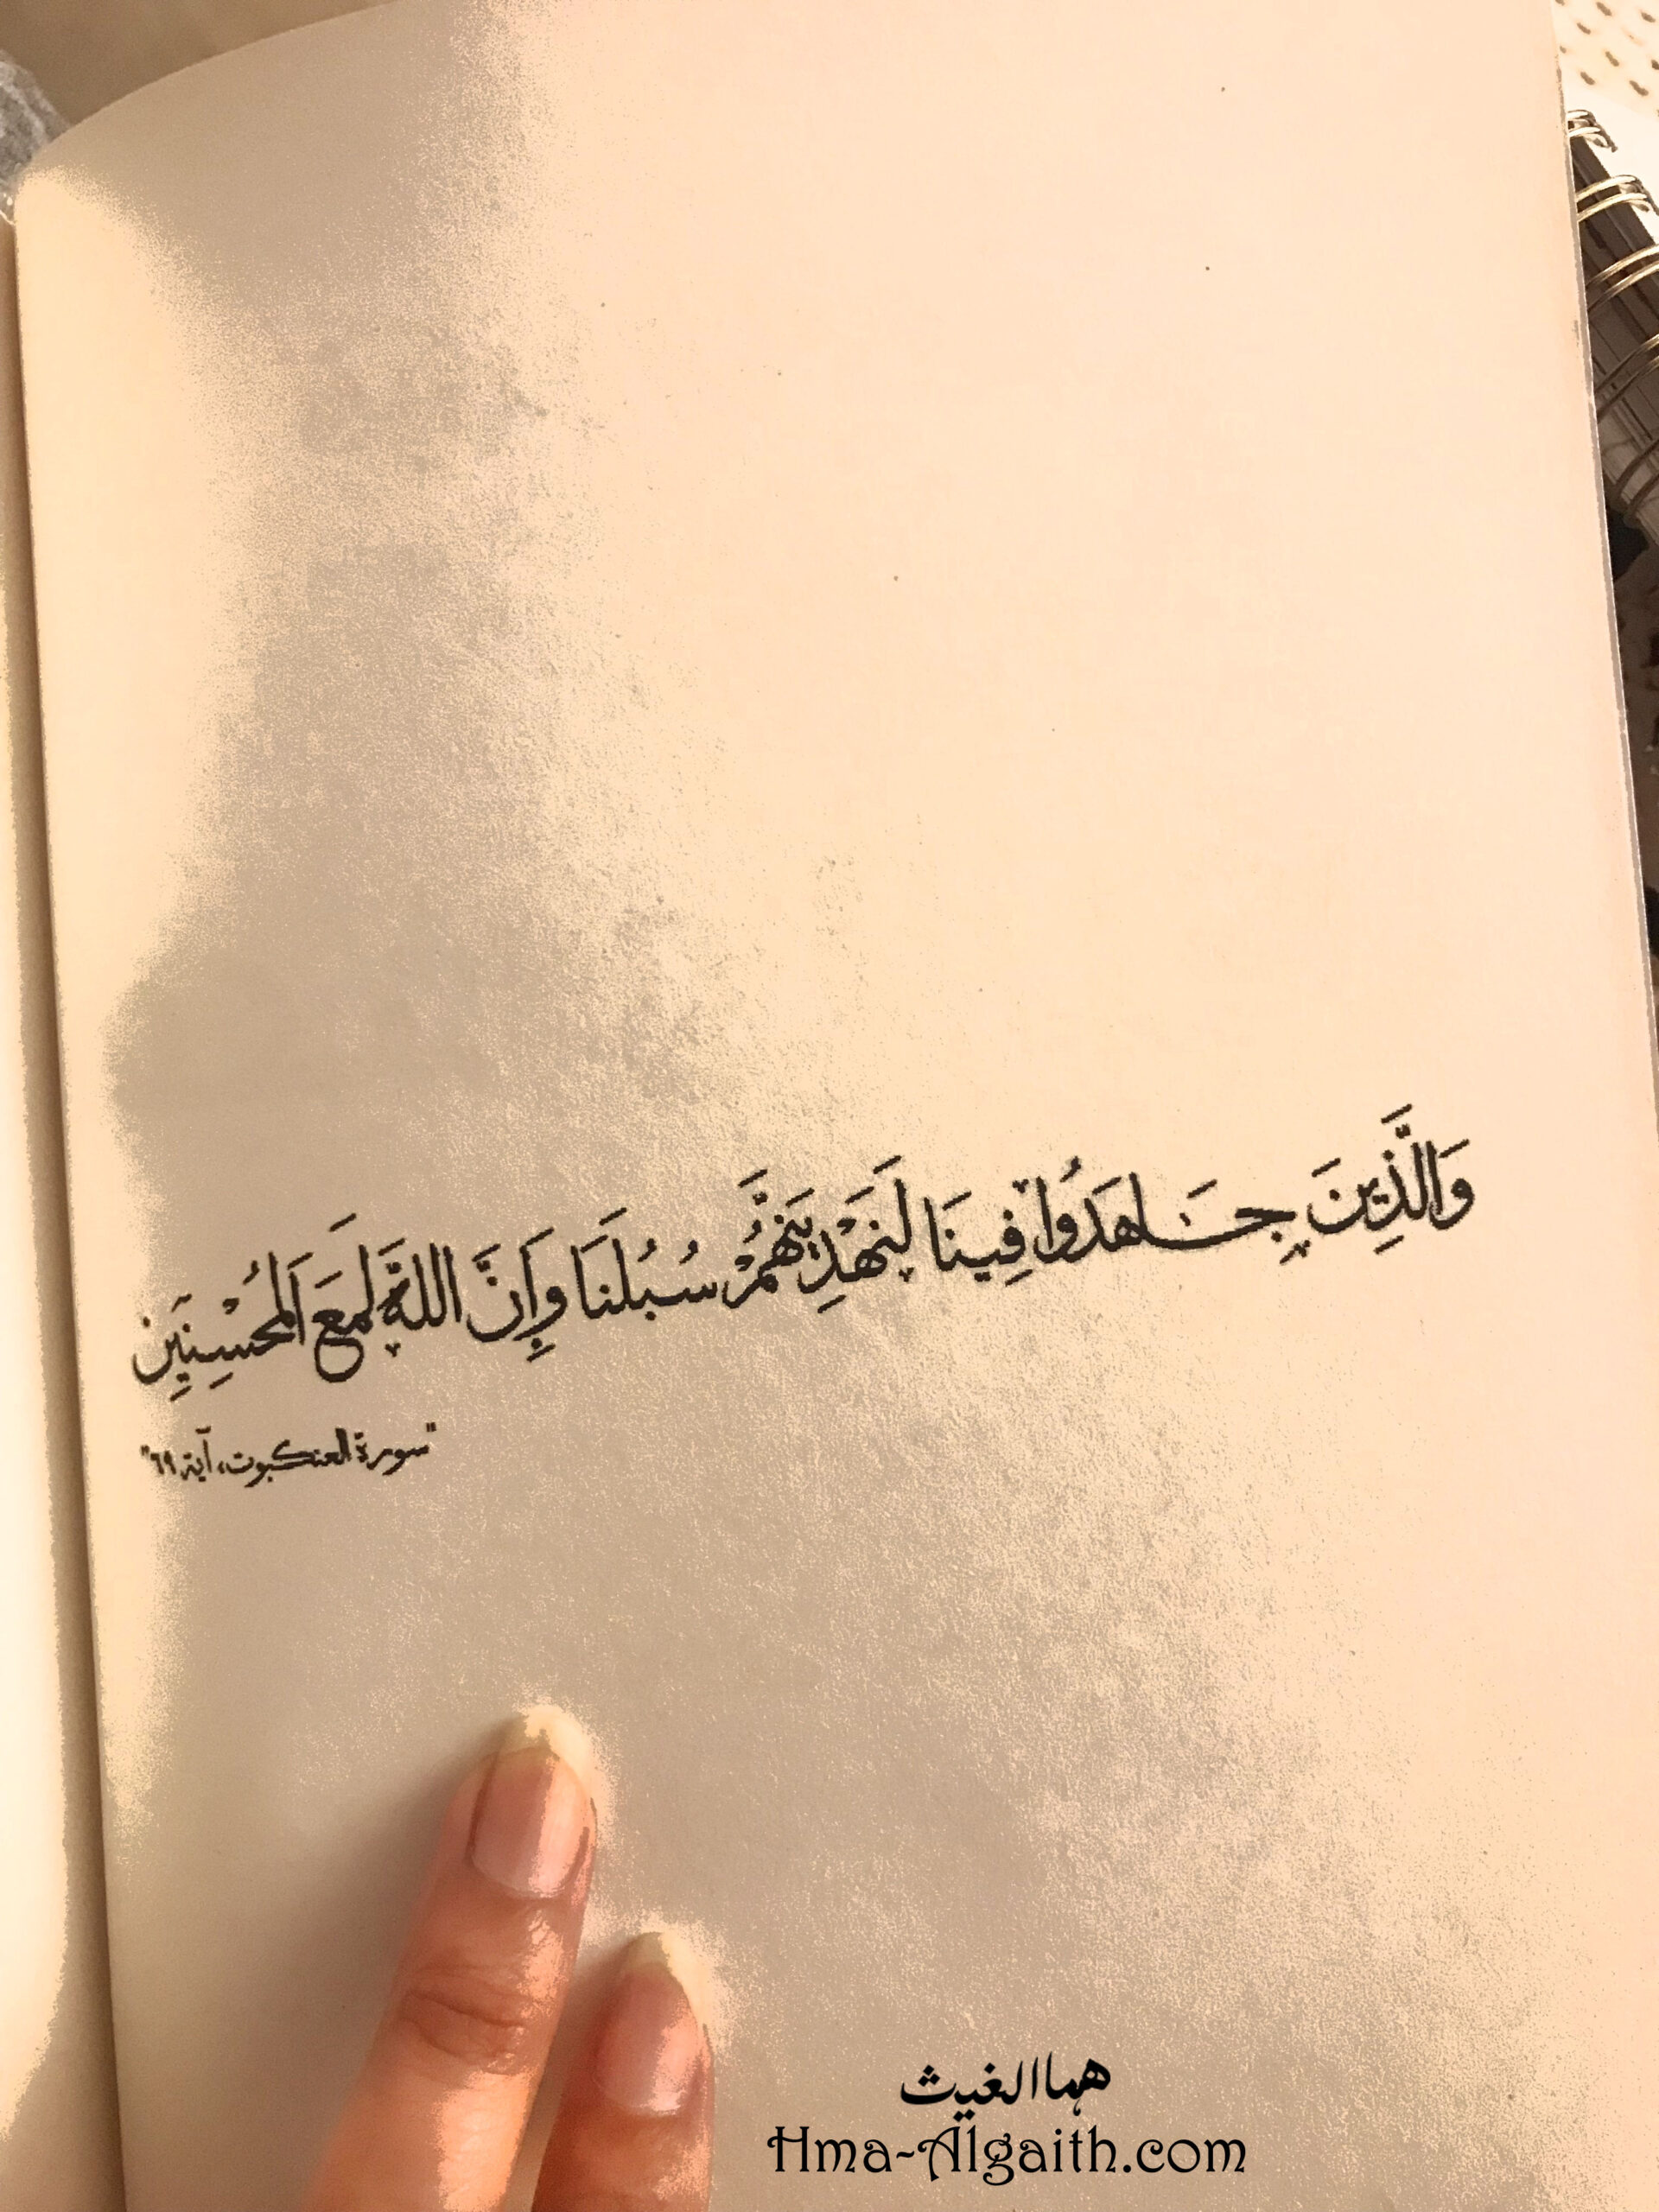 وَالَّذِينَ جَاهَدُوا فِينَا لَنَهْدِيَنَّهُمْ سُبُلَنَا وَإِنَّ اللهَ لَمَعَ الْمُحْسِنِينَ
"سورة العنكبوت، آية ٦٩"
هما الغيث
Hma-Algaith.com